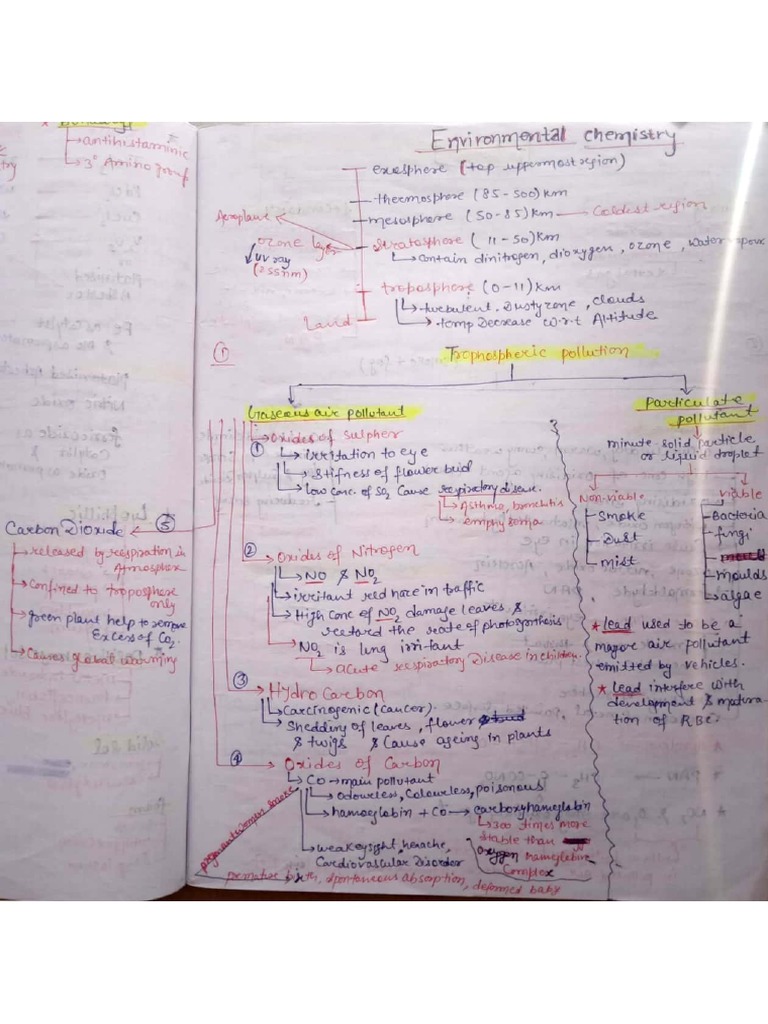 antihistaminic
3° Amino group
Environmental chemistry
exosphere (top uppermost region)
thermosphere (85-500) km
mesosphere (50-85) km — Coldest region
Aeroplant
ozone layer
stratosphere (11-50) km
UV ray
(255nm)
Contain dinitrogen, dioxygen, ozone, water
troposphere (0-11) km
turbulent. Dusty zone, clouds
temp Decrease w.r.t Altitude
Land
1
Trophospheric pollution
Gaseous air pollutant
Particulate pollutant
1 Oxides of Sulpher
irritation to eye
stifness of flower bud
low conc. of SO2 Cause respiratory disease.
Asthma, bronchitis
emphysema
minute solid particle
or liquid droplet
Non-viable
smoke
Dust
mist
viable
Bacteria
fungi
moulds
algae
5 Carbon Dioxide
released by respiration in
Atmospher
Confined to troposphere
only
green plant help to remove
Excess of CO2.
Causes global warming
2 Oxides of Nitrogen
NO & NO2
irritant red haze in traffic
High Conc of NO2 damage leaves &
retard the rate of photosynthesis
NO2 is lung irritant
acute respiratory Disease in children.
* lead used to be a
major air pollutant
emitted by vehicles.
* lead interfere with
development & matura-
tion of RBC.
3 Hydro Carbon
Carcinogenic (cancer).
Shedding of leaves, flower
& twigs & Cause ageing in plants
4 Oxides of Carbon
CO → main pollutant
Odourless, Colourless, poisonous
hamoglobin + CO → carboxyhamoglobin
300 times more
stable than
Oxygen hamoglobin
Complex
weak eysight, heache,
Cardiovascular Disorder
smoke
premative birth, spontaneous absorption, deformed baby